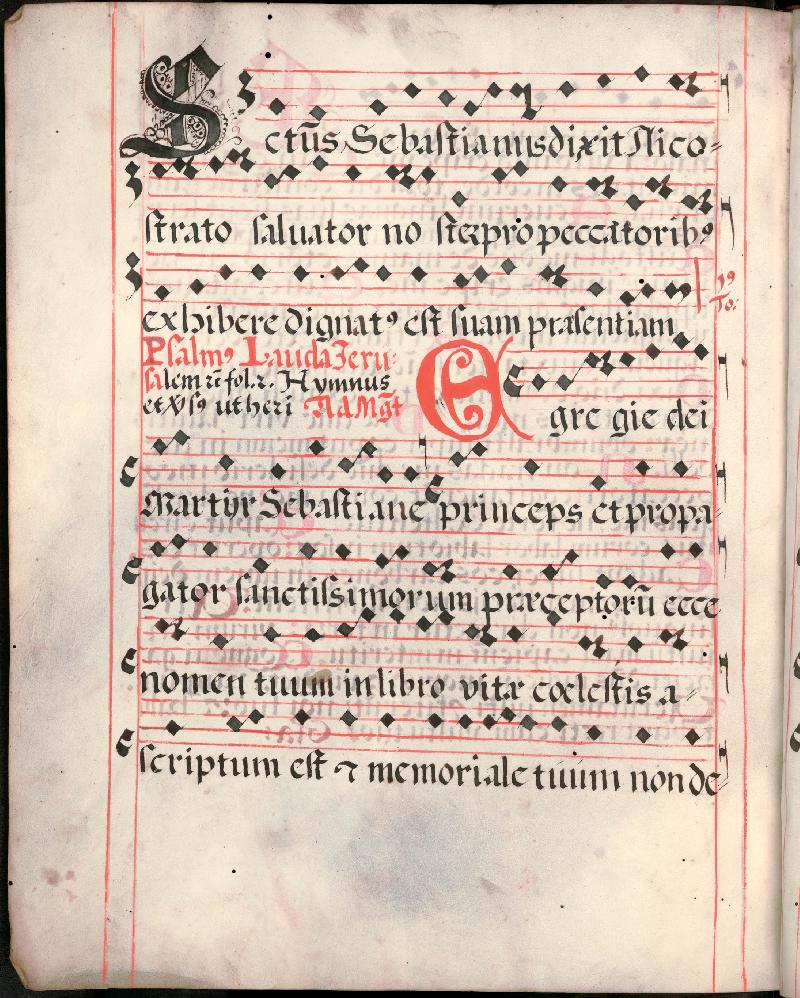 Sctūs Sebastianus dixit Nico-
strato saluator noster pro peccatorib9
exhibere dignat9 est suam præsentiam
Psalm9 Lauda Jeru-
salem rē fol. 2. Hymnus
et V s9 ut heri Ad Mgt
Egregie dei
Martyr Sebastiane princeps et propa-
gator sanctissimorum præceptorū ecce
nomen tuum in libro vitæ cœlestis a-
scriptum est ⁊ memoriale tuum non de